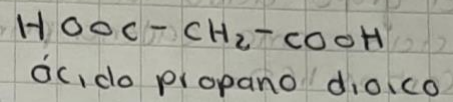 HOOC-CH₂-COOH
ácido propano dioico